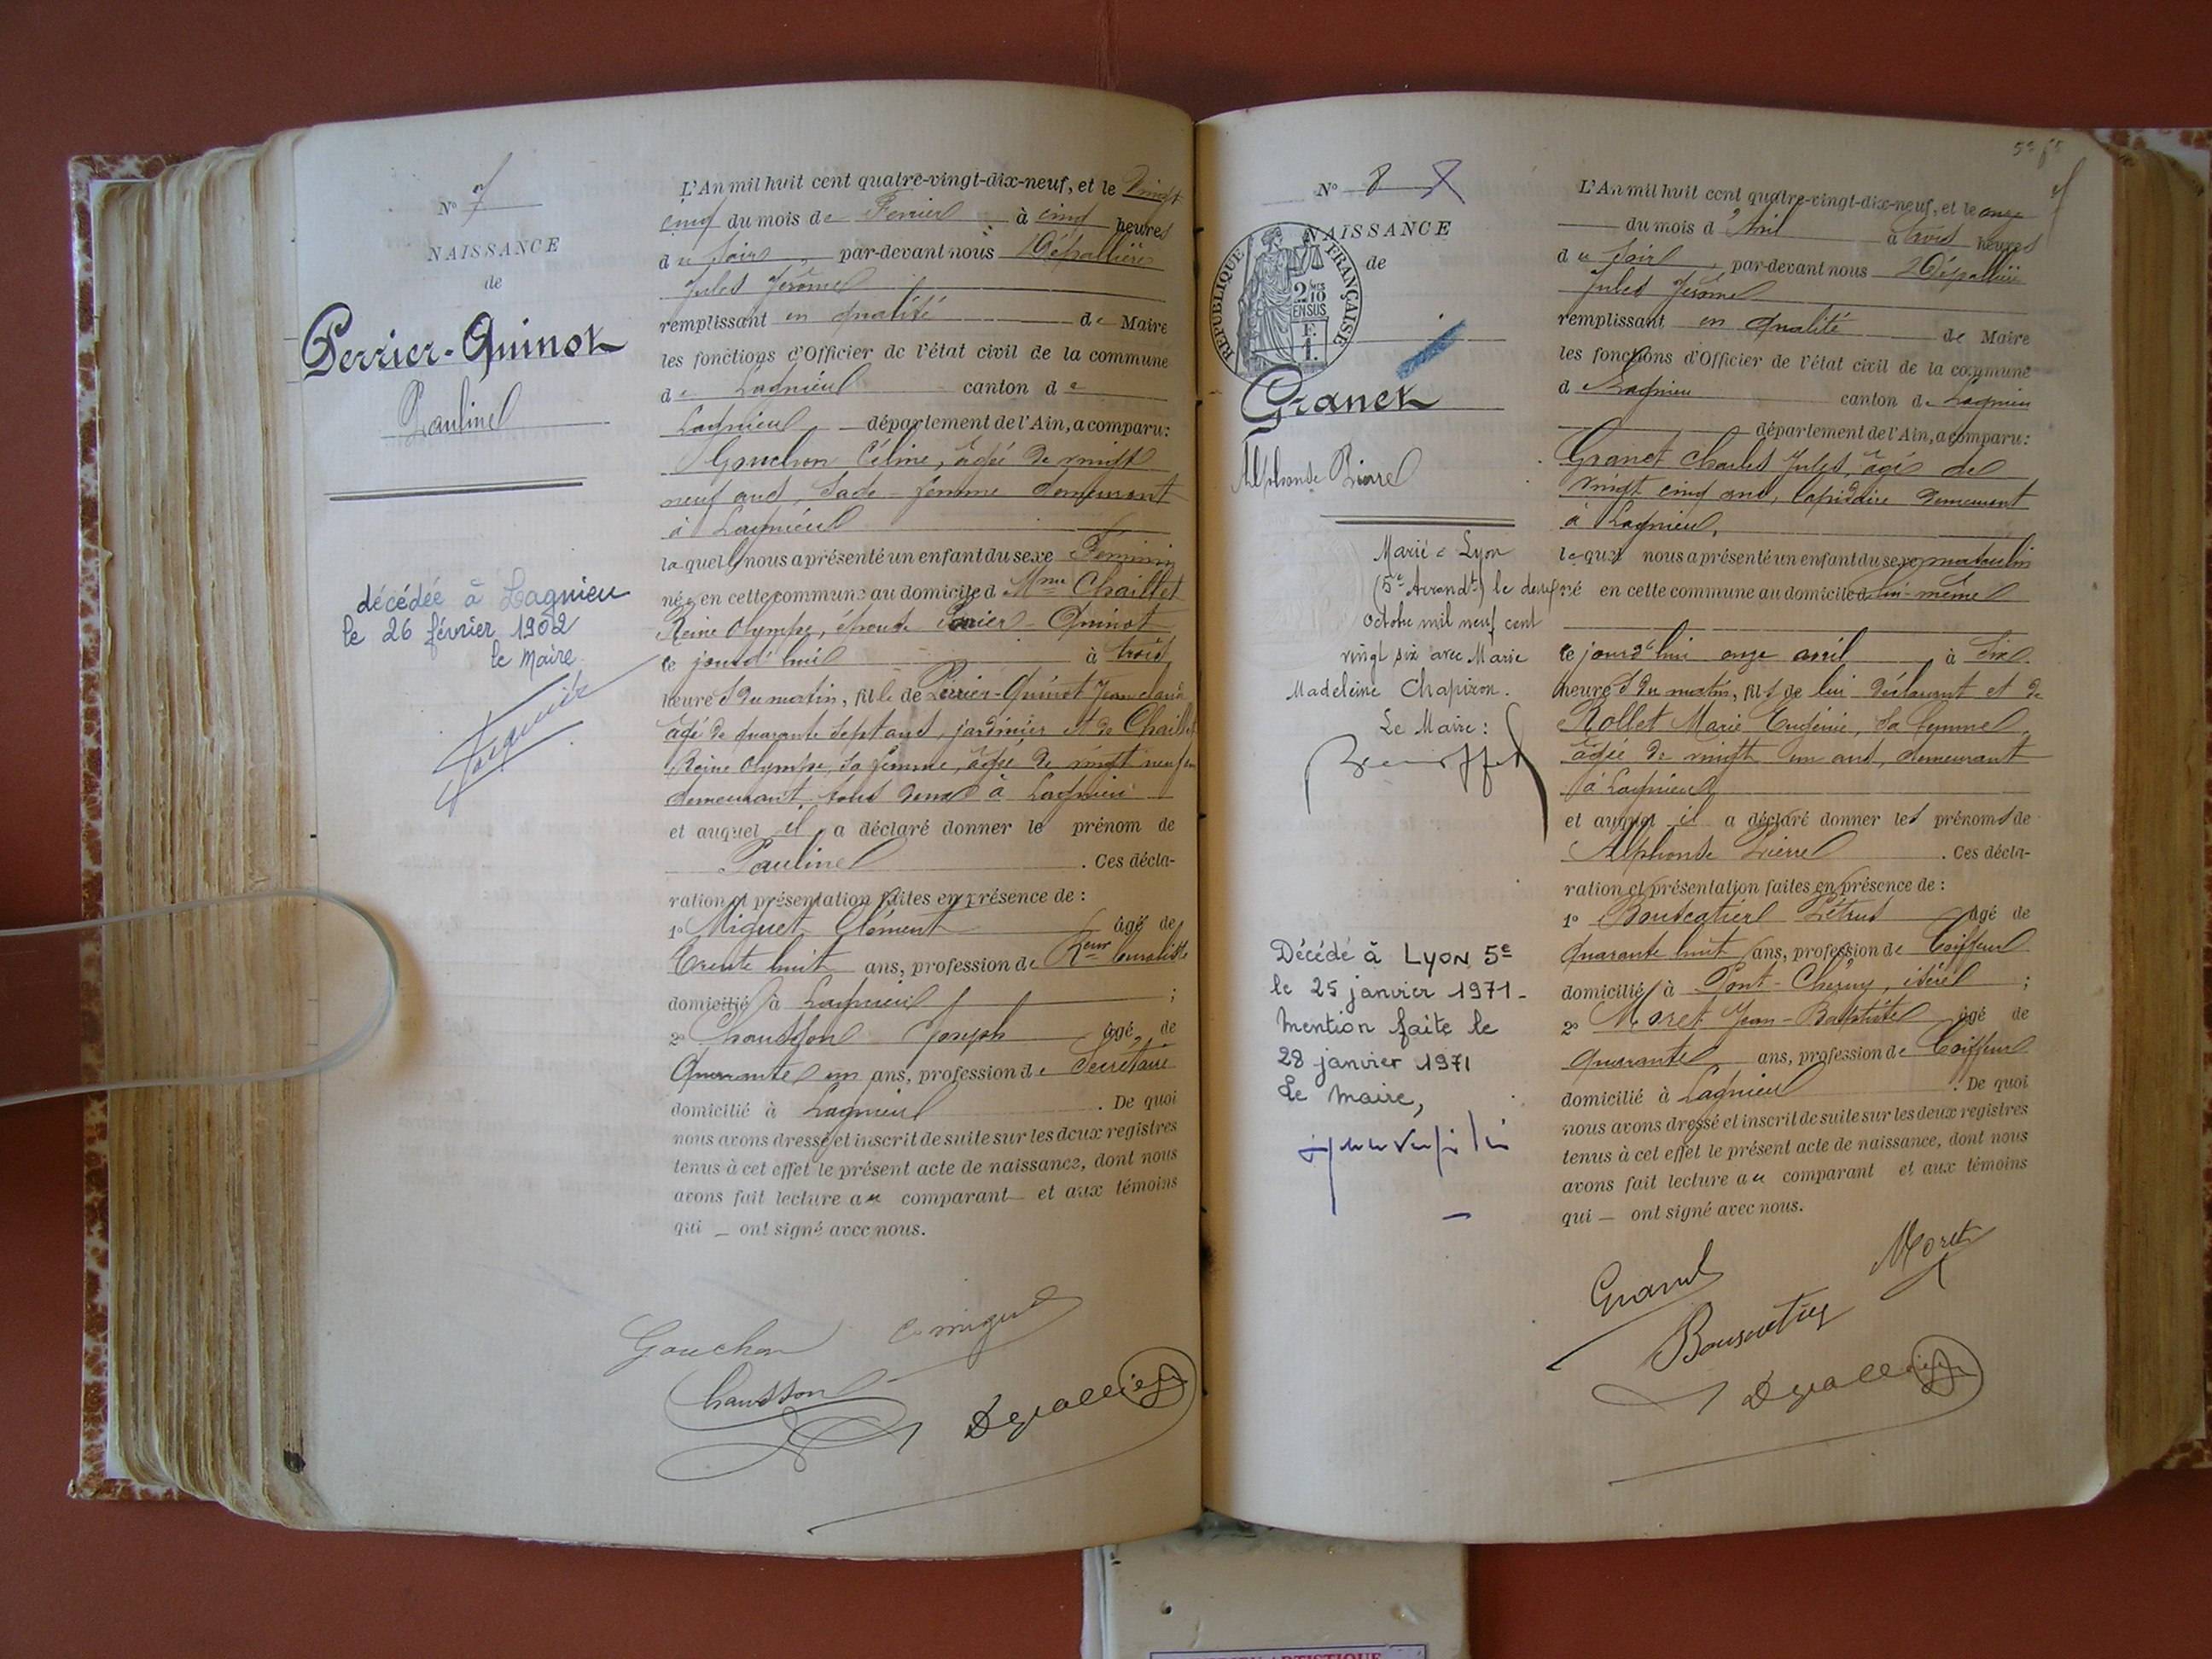 N° 7
NAISSANCE
de
Perrier-Quinot
Pauline
décédée à Lagnieu
le 26 février 1902
le Maire
L'An mil huit cent quatre-vingt-dix-neuf, et le Vingt
cinq du mois de Fevrier à cinq heures
du soir, par-devant nous Dépallière
Jules Jérôme
remplissant en qualité de Maire
les fonctions d'Officier de l'état civil de la commune
de Lagnieu canton de
Lagnieu département de l'Ain, a comparu:
Gouchon Céline, âgée de vingt
neuf ans, Sage-femme demeurant
à Lagnieu
laquelle nous a présenté un enfant du sexe Féminin
née en cette commune au domicile d Mme Chaillet
Reine Olympe, épouse Perrier-Quinot
le jourd'hui à trois
heures du matin, fille de Perrier-Quinot Jean claude
âgé de quarante sept ans, jardinier et de Chaillet
Reine Olympe, sa femme, âgée de vingt neuf ans
demeurant tous deux à Lagnieu
et auquel il a déclaré donner le prénom de
Pauline. Ces décla-
ration et présentation faites en présence de:
1° Miguet Clément âgé de
Trente huit ans, profession de Rcur buraliste
domicilié à Lagnieu;
2° Chausson Joseph âgé de
Quarante un ans, profession de Secrétaire
domicilié à Lagnieu. De quoi
nous avons dressé et inscrit de suite sur les deux registres
tenus à cet effet le présent acte de naissance, dont nous
avons fait lecture au comparant et aux témoins
qui — ont signé avec nous.
Gouchon C. Miguet
Chausson
N° 8 8
NAISSANCE
de
REPUBLIQUE FRANÇAISE
2/10 EN SUS
Granet
Alphonse Pierre
Marié à Lyon
(5e Arrondt) le deux
Octobre mil neuf cent
vingt six avec Marie
Madeleine Chapiron.
Le Maire:
Décédé à LYON 5e
le 25 janvier 1971-
Mention faite le
28 janvier 1971
Le Maire,
L'An mil huit cent quatre-vingt-dix-neuf, et le onze
du mois d'Avril à trois heures
du soir, par-devant nous Dépallière
Jules Jérôme
remplissant en qualité de Maire
les fonctions d'Officier de l'état civil de la commune
de Lagnieu canton de Lagnieu
département de l'Ain, a comparu:
Granet Charles Jules, âgé de
vingt cinq ans, lapidaire demeurant
à Lagnieu,
lequel nous a présenté un enfant du sexe masculin
né en cette commune au domicile de lui-même
le jourd'hui onze avril à six
heures du matin, fils de lui déclarant et de
Rollet Marie Eugénie, sa femme
âgée de vingt un ans, demeurant
à Lagnieu
et auquel il a déclaré donner les prénoms de
Alphonse Pierre. Ces décla-
ration et présentation faites en présence de:
1° Bouscatier Pétrus âgé de
Quarante huit ans, profession de Coiffeur
domicilié à Pont-Chéruy, isère;
2° Moret Jean-Baptiste âgé de
Quarante ans, profession de Coiffeur
domicilié à Lagnieu. De quoi
nous avons dressé et inscrit de suite sur les deux registres
tenus à cet effet le présent acte de naissance, dont nous
avons fait lecture au comparant et aux témoins
qui — ont signé avec nous.
Granet Moret